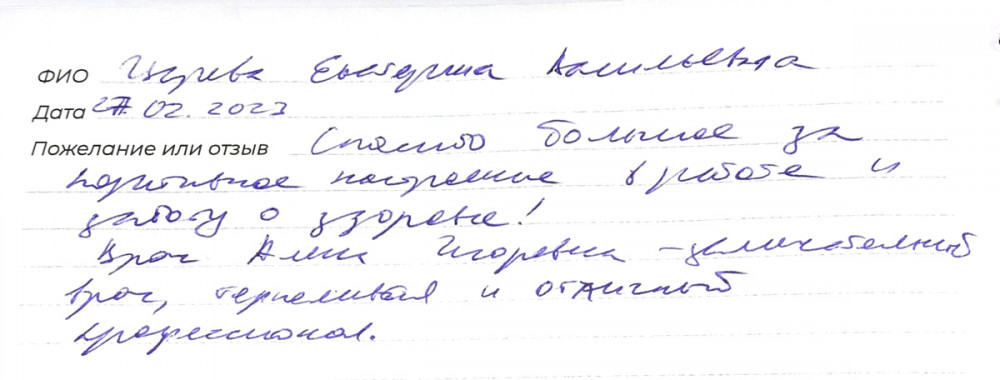 ФИО Екатерина
Дата 27.02.2023
Пожелание или отзыв Спасибо большое за
позитивное настроение в работе и
заботу о здоровье!
Врач Алина Игоревна - замечательный
врач, терпеливая и отличный
профессионал.